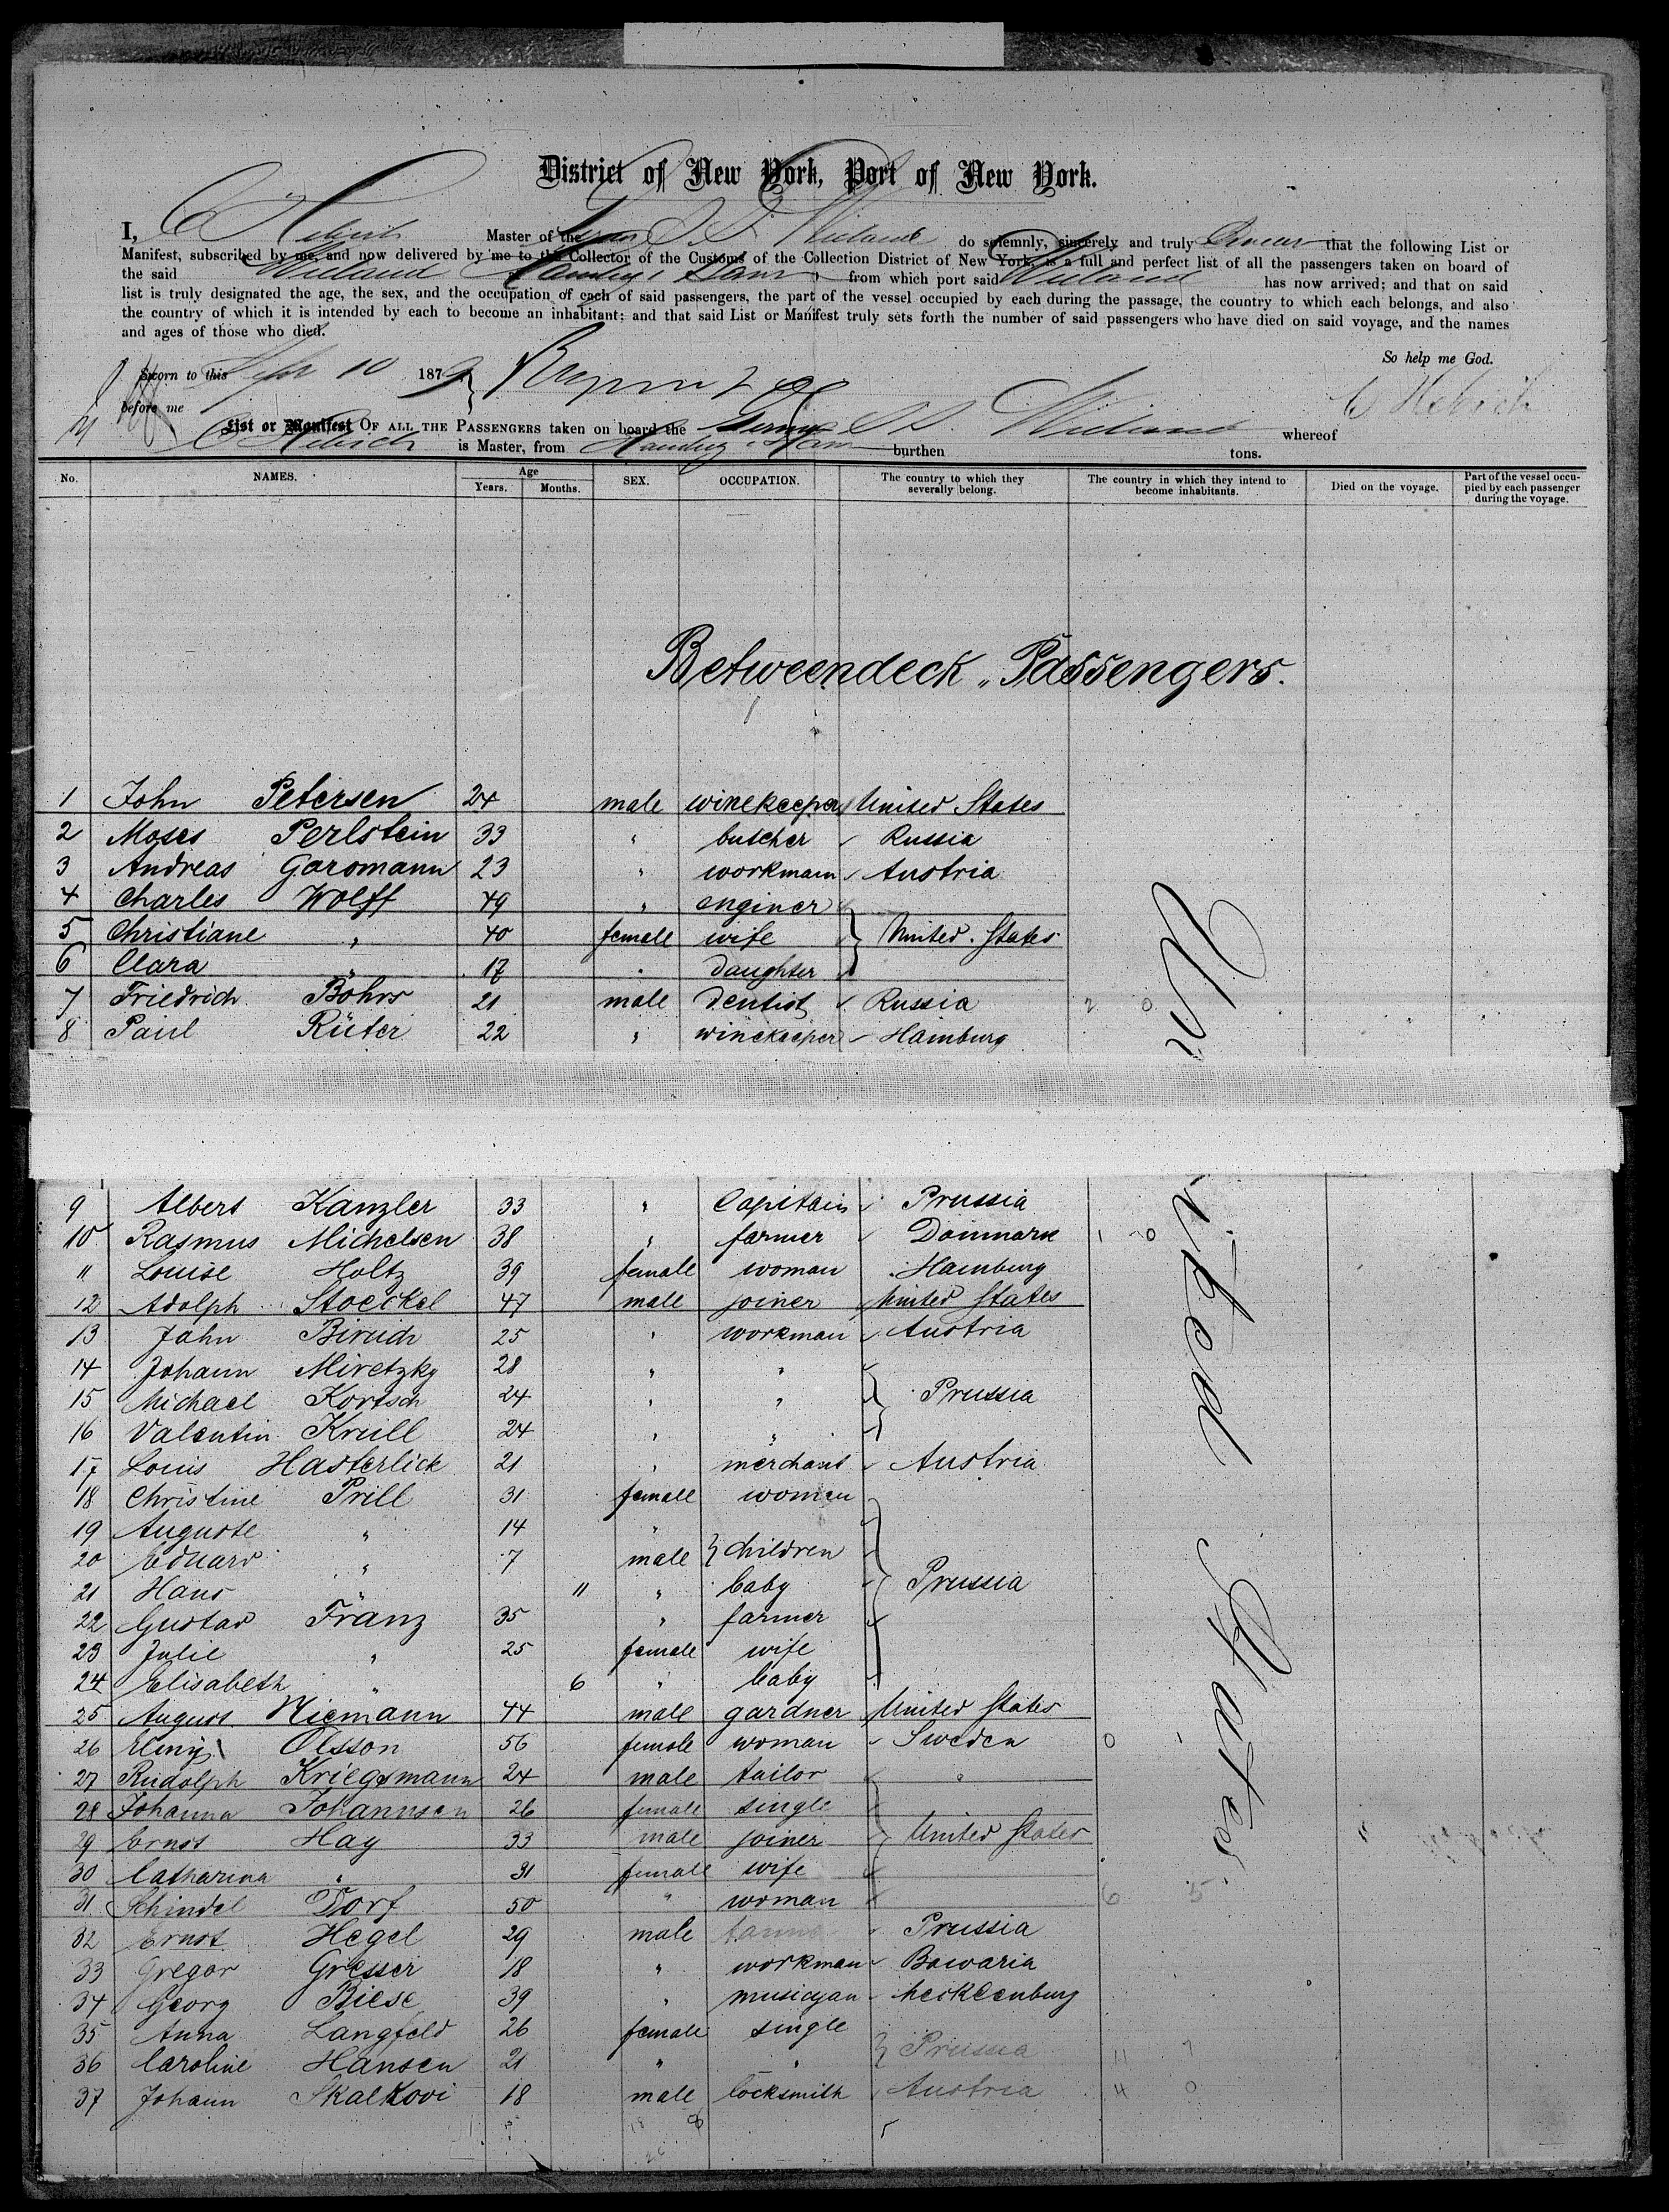 District of New York, Port of New York.
I, C Hebich Master of the German S. S. Wieland do solemnly, sincerely and truly Swear that the following List or
Manifest, subscribed by me, and now delivered by me to the Collector of the Customs of the Collection District of New York, is a full and perfect list of all the passengers taken on board of
the said Wieland from which port said Wieland has now arrived; and that on said
list is truly designated the age, the sex, and the occupation of each of said passengers, the part of the vessel occupied by each during the passage, the country to which each belongs, and also
the country of which it is intended by each to become an inhabitant; and that said List or Manifest truly sets forth the number of said passengers who have died on said voyage, and the names
and ages of those who died.
So help me God.
Sworn to this Sept 10 1879
before me
C Hebich
List or Manifest OF ALL THE PASSENGERS taken on board the German S. S. Wieland whereof
C Hebich is Master, from Hamburg burthen tons.
No. NAMES. Age Years. Months. SEX. OCCUPATION. The country to which they severally belong. The country in which they intend to become inhabitants. Died on the voyage. Part of the vessel occupied by each passenger during the voyage.
Betweendeck-Passengers.
1 John Petersen 24 male winekeeper United States
2 Moses Perlstein 33 " butcher Russia
3 Andreas Garomann 23 " workmann Austria
4 Charles Wolff 49 " enginer
5 Christiane " 40 female wife United States
6 Clara " 17 " daughter
7 Friedrich Bohrs 21 male dentist Russia 2 0
8 Paul Rüter 22 " winekeeper Hamburg
9 Albert Kanzler 33 " Capitain Prussia
10 Rasmus Michelsen 38 " farmer Danmark 1 20
11 Louise Holtz 39 female woman Hamburg
12 Adolph Stoeckel 47 male joiner United States
13 John Biruch 25 " workman Austria
14 Johann Miretzky 28 " "
15 Michael Kortsch 24 " " Prussia
16 Valentin Krull 24 " "
17 Louis Hasterlick 21 " merchant Austria
18 Christine Prill 31 female woman
19 Auguste " 14 "
20 Eduard " 7 male children
21 Hans " 11 " baby Prussia
22 Gustav Franz 35 " farmer
23 Julie " 25 female wife
24 Elisabeth " 6 " baby
25 August Niemann 44 male gardner United States
26 Olsson 56 female woman Sweden 0 1
27 Rudolph Kriegsmann 24 male tailor "
28 Johanna Johannsen 26 female single
29 Ernst Hay 33 male joiner United States
30 Catharina " 31 female wife
31 Schindel Dorf 50 " woman 6 5
32 Ernst Hegel 29 male Prussia
33 Gregor Gresser 18 " workman Bawaria
34 Georg Biese 39 " musicyan Mecklenburg
35 Anna Langfeld 26 female single
36 Caroline Hansen 21 " " Prussia 11 7
37 Johann Skalkovi 18 male locksmith Austria 4 0
United States